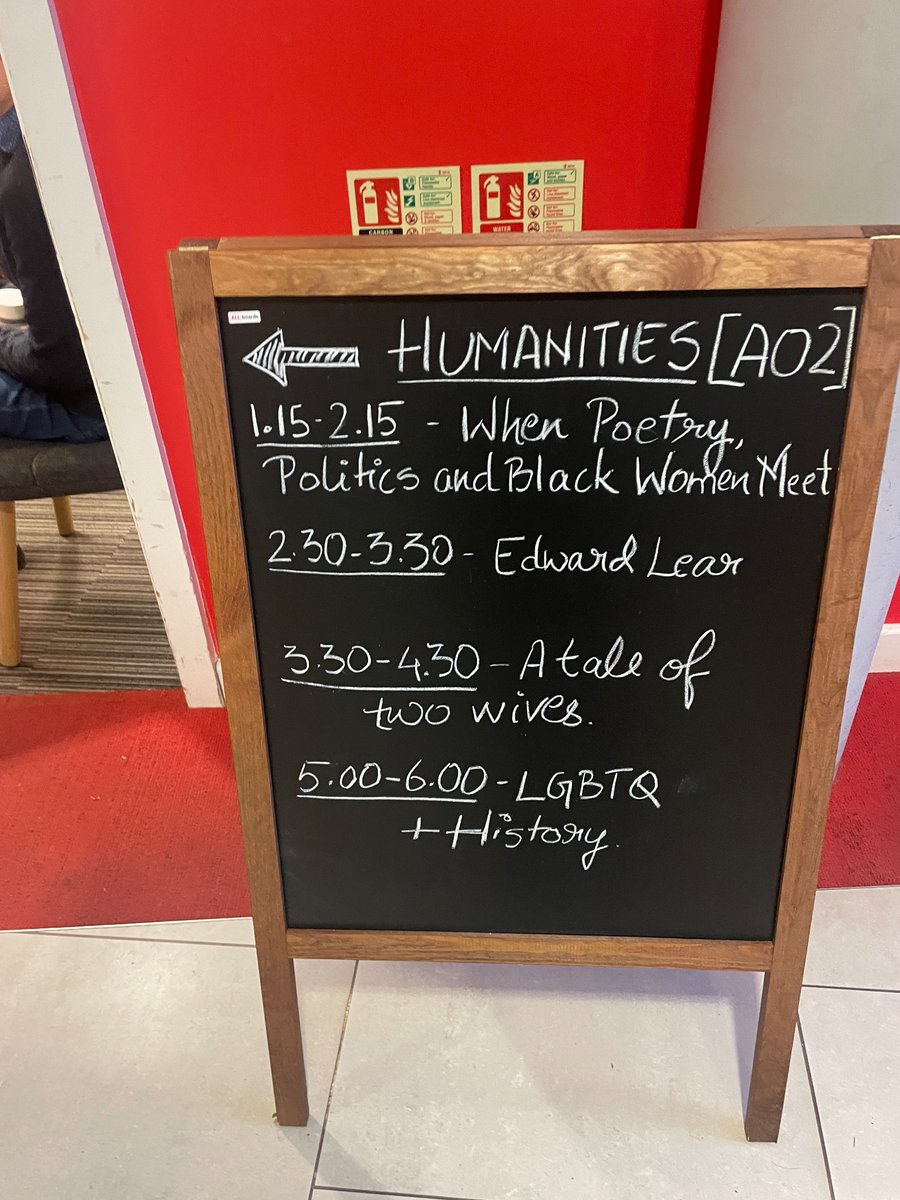 CARBON
WATER
ALL boards
HUMANITIES [A02]
1.15-2.15 - When Poetry,
Politics and Black Women Meet
2.30-3.30 - Edward Lear
3.30-4.30 - A tale of
two wives.
5.00-6.00 - LGBTQ
+ History.